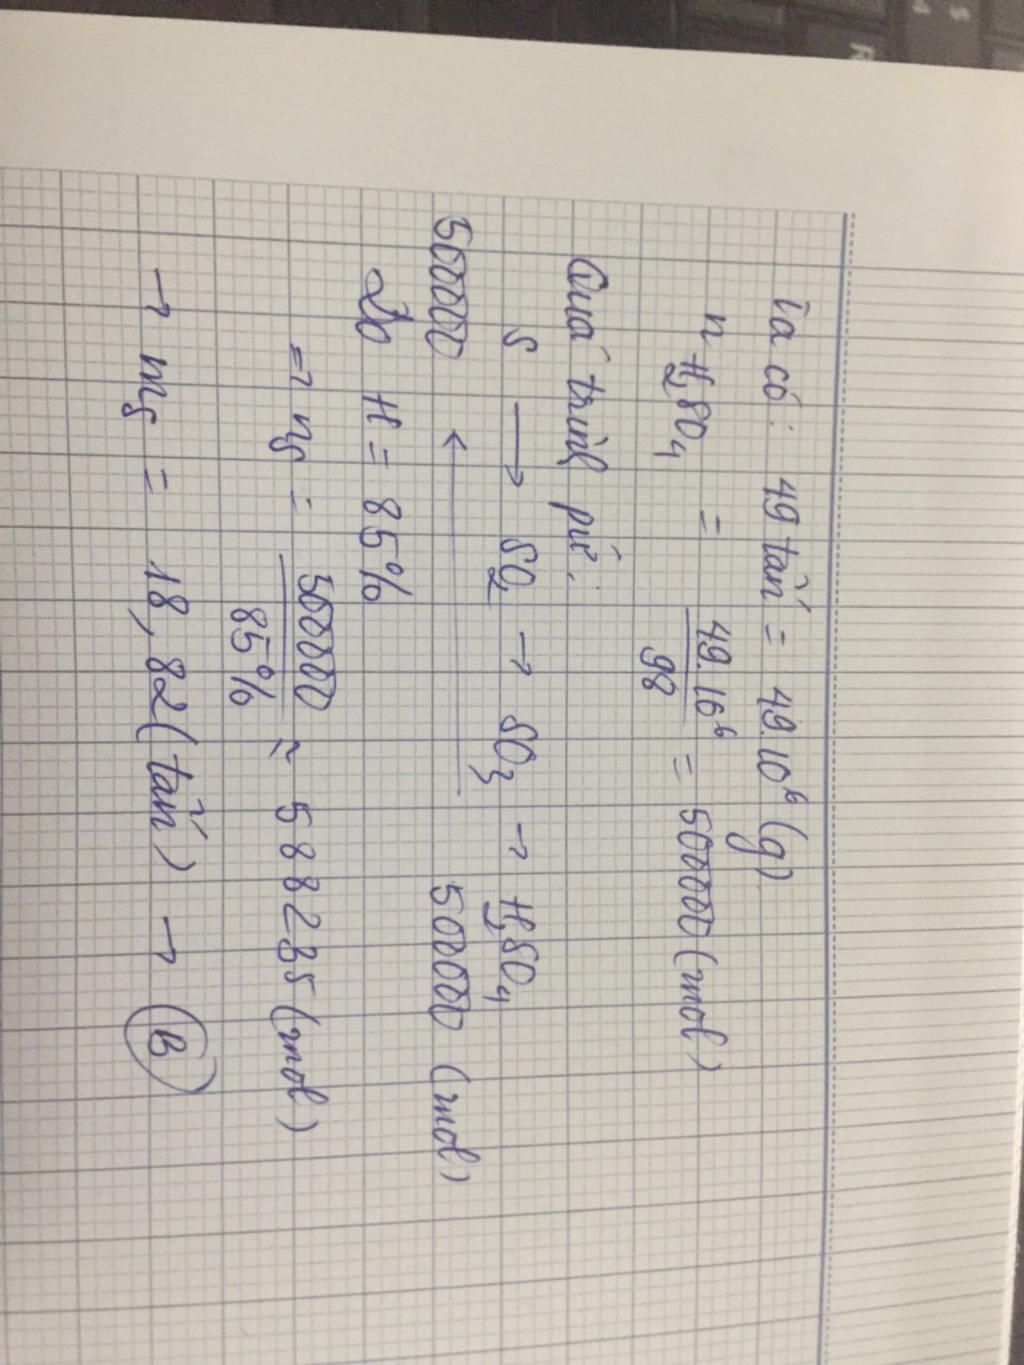 Ta có: 49 tấn = 49.10⁶ (g)
n H₂SO₄ = 49.10⁶ / 98 = 500000 (mol)
Quá trình pứ:
S → SO₂ → SO₃ → H₂SO₄
500000 ← 500000 (mol)
Do H = 85%
=> nS = 500000 / 85% ≈ 588235 (mol)
→ mS = 18,82 (tấn) → B